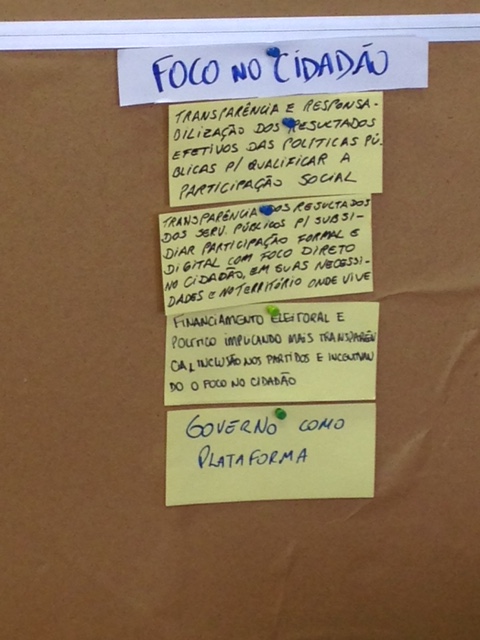 FOCO NO CIDADÃO
TRANSPARÊNCIA E RESPONSA-
BILIZAÇÃO DOS RESULTADOS
EFETIVOS DAS POLÍTICAS PÚ-
BLICAS P/ QUALIFICAR A
PARTICIPAÇÃO SOCIAL
TRANSPARÊNCIA DOS RESULTADOS
DOS SERV. PÚBLICOS P/ SUBSI-
DIAR PARTICIPAÇÃO FORMAL E
DIGITAL COM FOCO DIRETO
NO CIDADÃO, EM SUAS NECESSI-
DADES E NO TERRITÓRIO ONDE VIVE
FINANCIAMENTO ELEITORAL E
POLÍTICO IMPLICANDO MAIS TRANSPARÊN
CIA, INCLUSÃO NOS PARTIDOS E INCENTIVAN
DO O FOCO NO CIDADÃO
GOVERNO COMO
PLATAFORMA